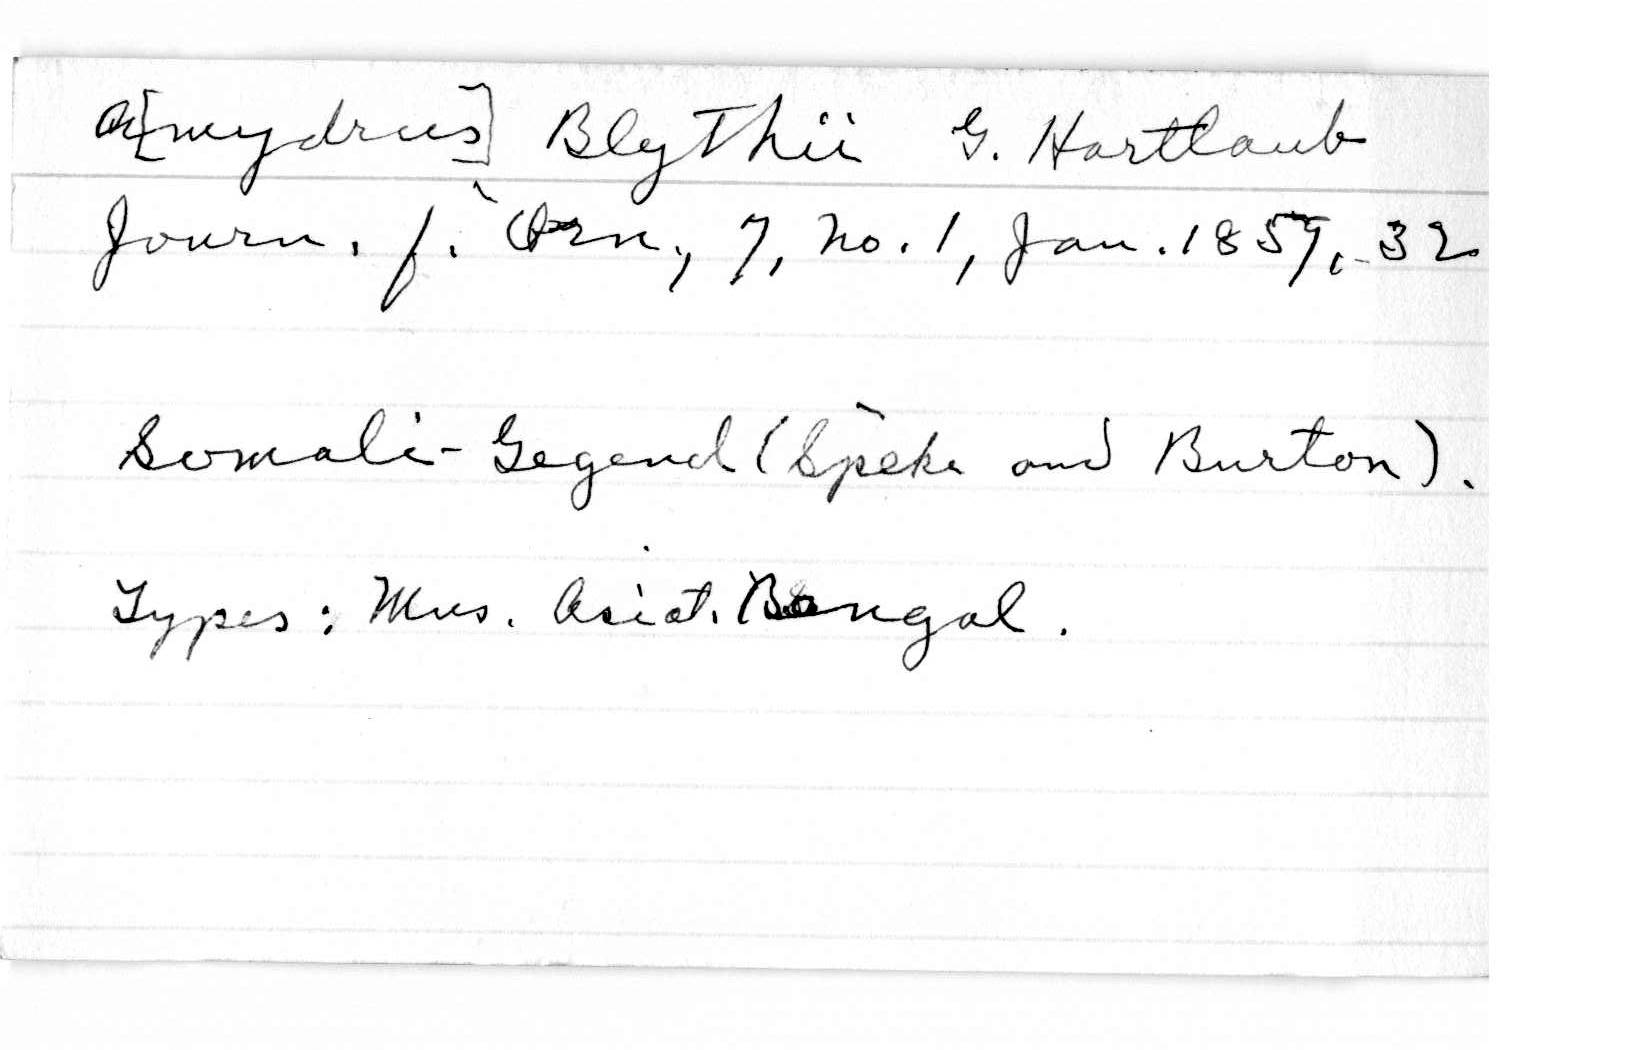 A[mydrus] Blythii G. Hartlaub
Journ. f. Orn., 7, no. 1, Jan. 1859, 32
Somali-Gegend (Speke and Burton).
Types: Mus. Asiat. Bengal.